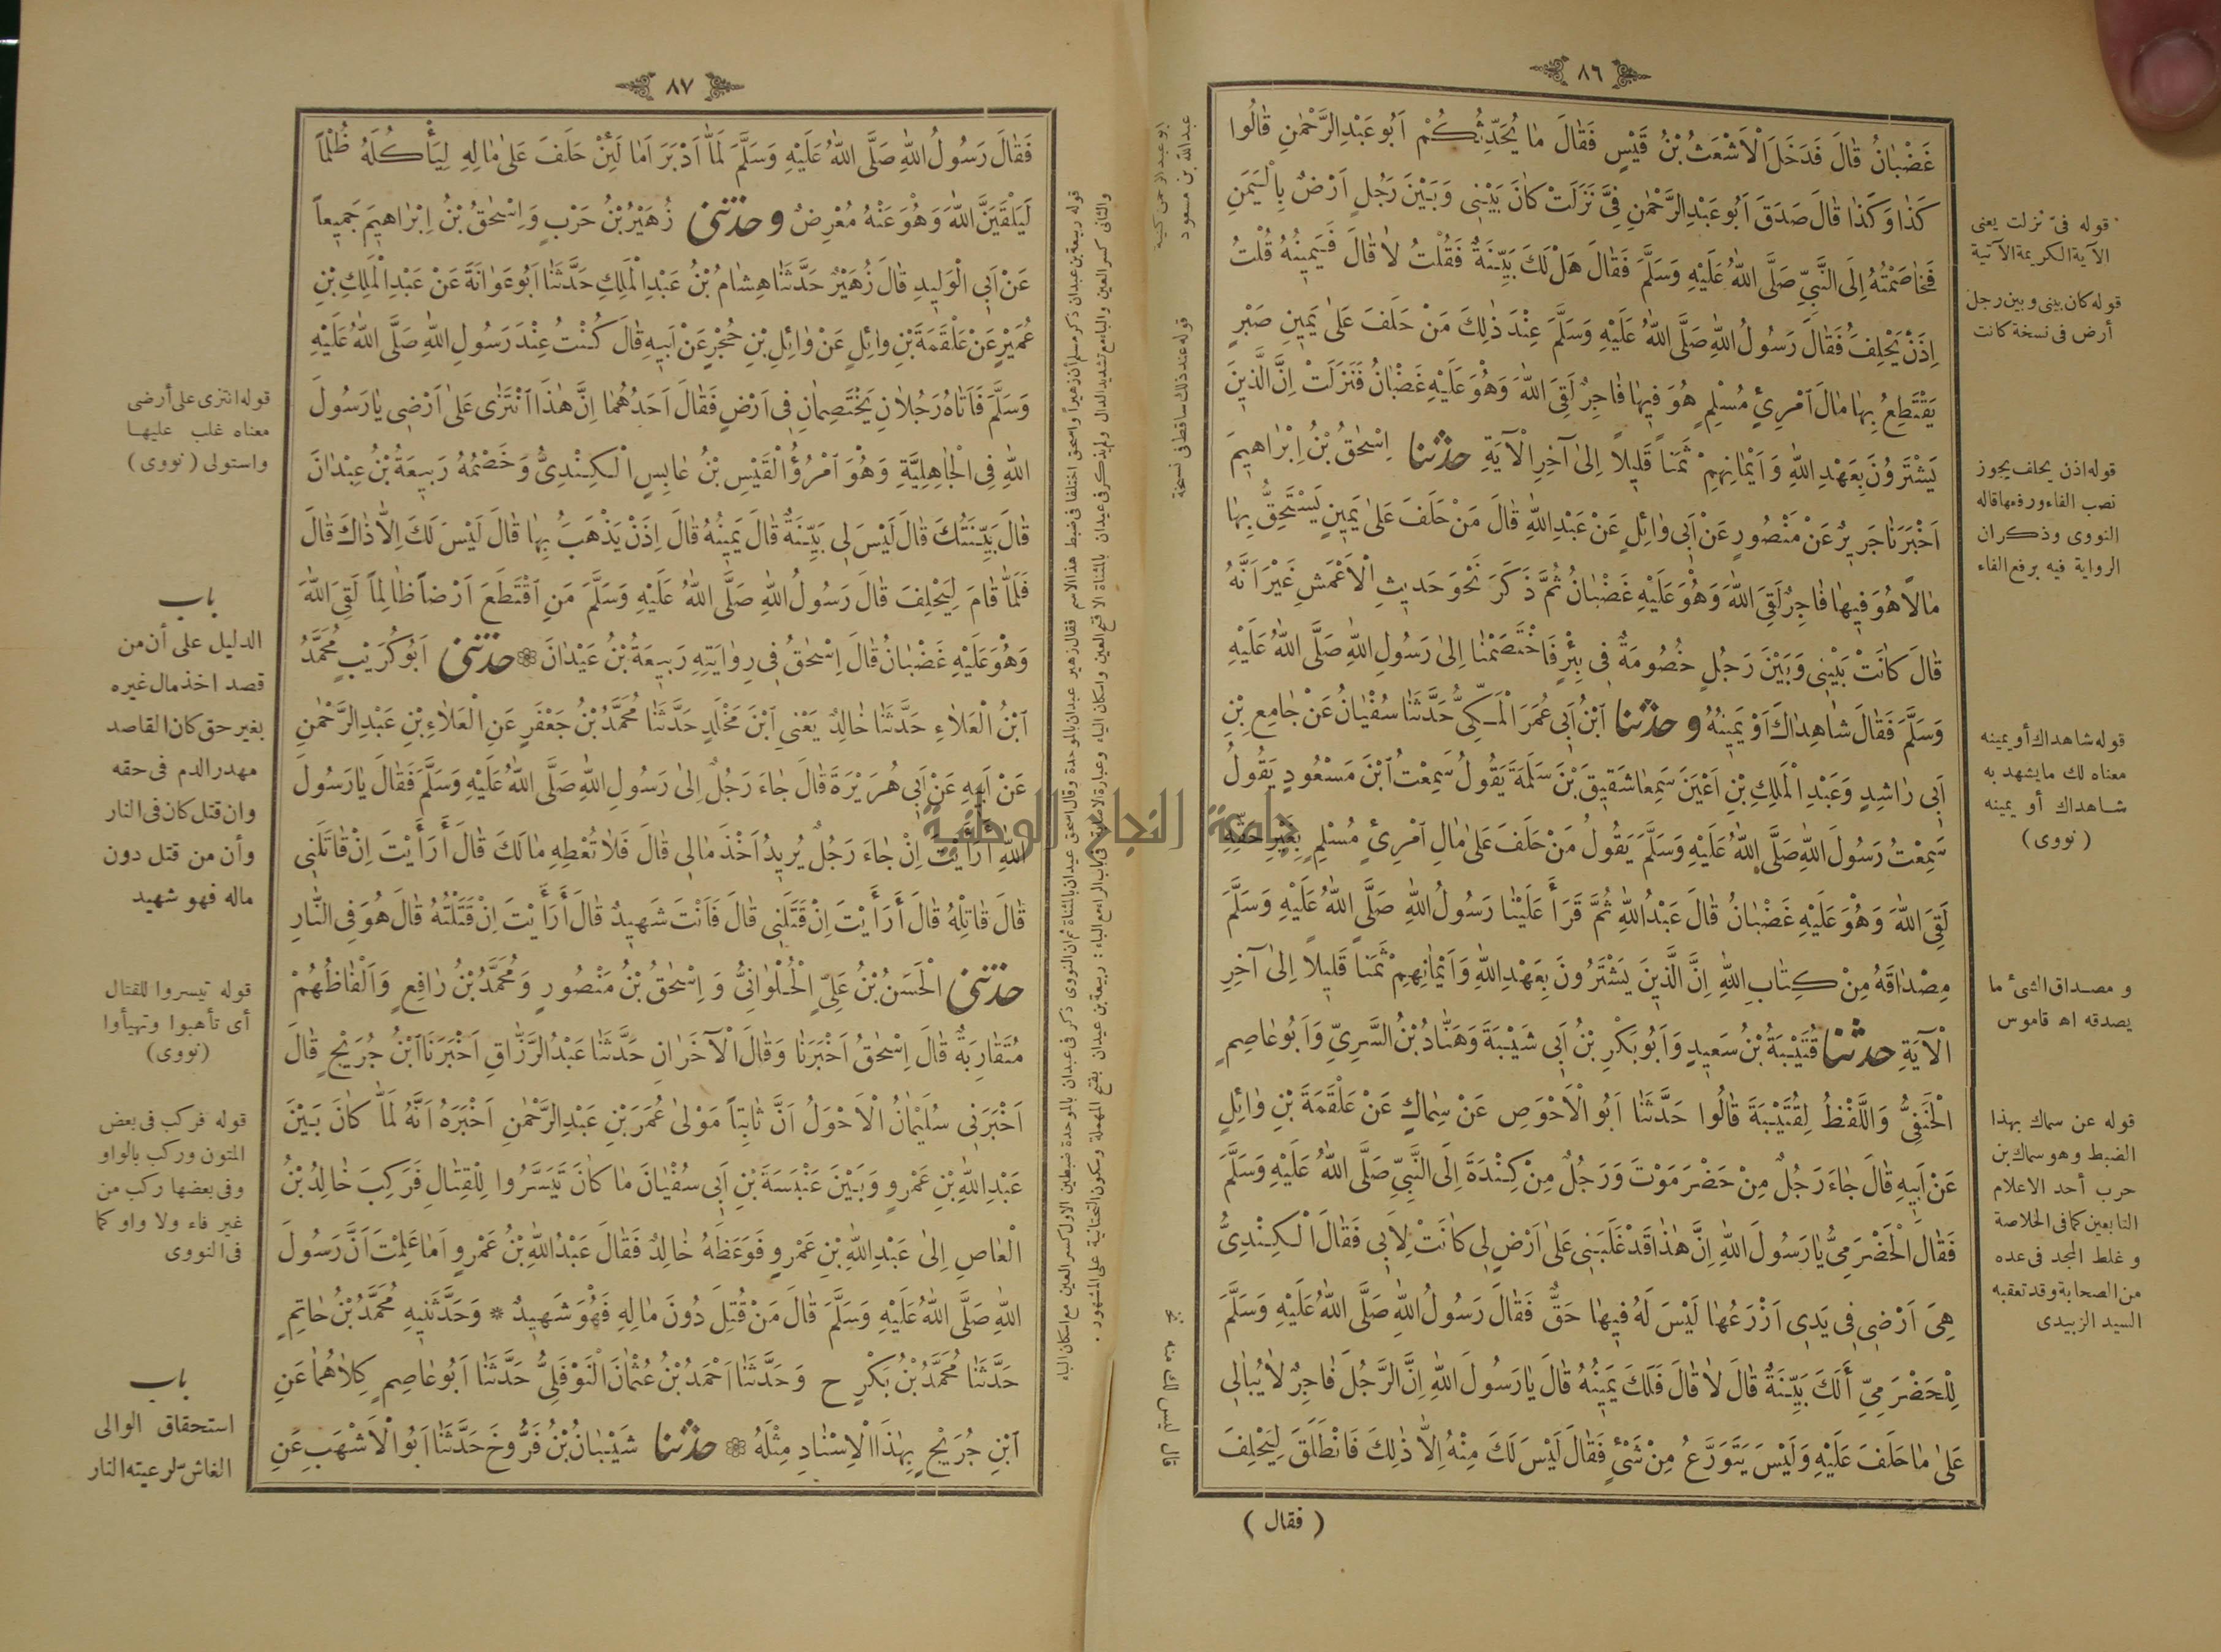 ٨٦
غَضْبَانُ قَالَ فَدَخَلَ الْاَشْعَثُ بْنُ قَيْسٍ فَقَالَ مَا يُحَدِّثُكُمْ اَبُو عَبْدِ الرَّحْمٰنِ قَالُوا
كَذَا وَكَذَا قَالَ صَدَقَ اَبُو عَبْدِ الرَّحْمٰنِ فِيَّ نَزَلَتْ كَانَ بَيْنِى وَبَيْنَ رَجُلٍ اَرْضٌ بِالْيَمَنِ
فَخَاصَمْتُهُ اِلَى النَّبِيِّ صَلَّى اللهُ عَلَيْهِ وَسَلَّمَ فَقَالَ هَلْ لَكَ بَيِّنَةٌ فَقُلْتُ لَا قَالَ فَيَمِينُهُ قُلْتُ
اِذَنْ يَحْلِفُ فَقَالَ رَسُولُ اللهِ صَلَّى اللهُ عَلَيْهِ وَسَلَّمَ عِنْدَ ذٰلِكَ مَنْ حَلَفَ عَلٰى يَمِينِ صَبْرٍ
يَقْتَطِعُ بِهَا مَالَ امْرِئٍ مُسْلِمٍ هُوَ فِيهَا فَاجِرٌ لَقِيَ اللهَ وَهُوَ عَلَيْهِ غَضْبَانُ فَنَزَلَتْ اِنَّ الَّذِينَ
يَشْتَرُونَ بِعَهْدِ اللهِ وَاَيْمَانِهِمْ ثَمَنًا قَلِيلاً اِلٰى آخِرِ الْآيَةِ حدثنا اِسْحٰقُ بْنُ اِبْرَاهِيمَ
اَخْبَرَنَا جَرِيرٌ عَنْ مَنْصُورٍ عَنْ اَبِى وَائِلٍ عَنْ عَبْدِ اللهِ قَالَ مَنْ حَلَفَ عَلٰى يَمِينٍ يَسْتَحِقُّ بِهَا
مَالاً هُوَ فِيهَا فَاجِرٌ لَقِيَ اللهَ وَهُوَ عَلَيْهِ غَضْبَانُ ثُمَّ ذَكَرَ نَحْوَ حَدِيثِ الْاَعْمَشِ غَيْرَ اَنَّهُ
قَالَ كَانَتْ بَيْنِى وَبَيْنَ رَجُلٍ خُصُومَةٌ فِى بِئْرٍ فَاخْتَصَمْنَا اِلٰى رَسُولِ اللهِ صَلَّى اللهُ عَلَيْهِ
وَسَلَّمَ فَقَالَ شَاهِدَاكَ اَوْ يَمِينُهُ وحدثنا ابْنُ اَبِى عُمَرَ الْمَكِّيُّ حَدَّثَنَا سُفْيَانُ عَنْ جَامِعِ بْنِ
اَبِى رَاشِدٍ وَعَبْدِ الْمَلِكِ بْنِ اَعْيَنَ سَمِعَا شَقِيقَ بْنَ سَلَمَةَ يَقُولُ سَمِعْتُ ابْنَ مَسْعُودٍ يَقُولُ
سَمِعْتُ رَسُولَ اللهِ صَلَّى اللهُ عَلَيْهِ وَسَلَّمَ يَقُولُ مَنْ حَلَفَ عَلٰى مَالِ امْرِئٍ مُسْلِمٍ بِغَيْرِ حَقِّهِ
لَقِيَ اللهَ وَهُوَ عَلَيْهِ غَضْبَانُ قَالَ عَبْدُ اللهِ ثُمَّ قَرَأَ عَلَيْنَا رَسُولُ اللهِ صَلَّى اللهُ عَلَيْهِ وَسَلَّمَ
مِصْدَاقَهُ مِنْ كِتَابِ اللهِ اِنَّ الَّذِينَ يَشْتَرُونَ بِعَهْدِ اللهِ وَاَيْمَانِهِمْ ثَمَنًا قَلِيلاً اِلٰى آخِرِ
الْآيَةِ حدثنا قُتَيْبَةُ بْنُ سَعِيدٍ وَاَبُو بَكْرِ بْنُ اَبِى شَيْبَةَ وَهَنَّادُ بْنُ السَّرِيِّ وَاَبُو عَاصِمٍ
الْحَنَفِيُّ وَاللَّفْظُ لِقُتَيْبَةَ قَالُوا حَدَّثَنَا اَبُو الْاَحْوَصِ عَنْ سِمَاكٍ عَنْ عَلْقَمَةَ بْنِ وَائِلٍ
عَنْ اَبِيهِ قَالَ جَاءَ رَجُلٌ مِنْ حَضْرَمَوْتَ وَرَجُلٌ مِنْ كِنْدَةَ اِلَى النَّبِيِّ صَلَّى اللهُ عَلَيْهِ وَسَلَّمَ
فَقَالَ الْحَضْرَمِيُّ يَا رَسُولَ اللهِ اِنَّ هٰذَا قَدْ غَلَبَنِى عَلٰى اَرْضٍ لِى كَانَتْ لِاَبِى فَقَالَ الْكِنْدِيُّ
هِيَ اَرْضِى فِى يَدِى اَزْرَعُهَا لَيْسَ لَهُ فِيهَا حَقٌّ فَقَالَ رَسُولُ اللهِ صَلَّى اللهُ عَلَيْهِ وَسَلَّمَ
لِلْحَضْرَمِيِّ أَلَكَ بَيِّنَةٌ قَالَ لَا قَالَ فَلَكَ يَمِينُهُ قَالَ يَا رَسُولَ اللهِ اِنَّ الرَّجُلَ فَاجِرٌ لَا يُبَالِى
عَلٰى مَا حَلَفَ عَلَيْهِ وَلَيْسَ يَتَوَرَّعُ مِنْ شَىْءٍ فَقَالَ لَيْسَ لَكَ مِنْهُ اِلَّا ذٰلِكَ فَانْطَلَقَ لِيَحْلِفَ
( فقال )
قوله فىّ نزلت يعنى
الآية الكريمة الآتية
قوله كان بينى وبين رجل
أرض فى نسخة كانت
قوله اذن يحلف يجوز
نصب الفاء ورفعها قاله
النووى وذكر ان
الرواية فيه برفع الفاء
قوله شاهداك أو يمينه
معناه لك ما يشهد به
شاهداك أو يمينه
( نووى )
و مصداق الشئ ما
يصدقه اه قاموس
قوله عن سماك بهذا
الضبط وهو سماك بن
حرب أحد الاعلام
التابعين كما فى الخلاصة
و غلط المجد فى عده
من الصحابة وقد تعقبه
السيد الزبيدى
ابو عبد الرحمن كنية
عبد الله بن مسعود
قوله عند ذلك ساقط فى نسخة
قال ليس لك منه نخ
٨٧
فَقَالَ رَسُولُ اللهِ صَلَّى اللهُ عَلَيْهِ وَسَلَّمَ لَمَّا اَدْبَرَ اَمَا لَئِنْ حَلَفَ عَلٰى مَالِهِ لِيَأْكُلَهُ ظُلْمًا
لَيَلْقَيَنَّ اللهَ وَهُوَ عَنْهُ مُعْرِضٌ وحدثنى زُهَيْرُ بْنُ حَرْبٍ وَاِسْحٰقُ بْنُ اِبْرَاهِيمَ جَمِيعًا
عَنْ اَبِى الْوَلِيدِ قَالَ زُهَيْرٌ حَدَّثَنَا هِشَامُ بْنُ عَبْدِ الْمَلِكِ حَدَّثَنَا اَبُو عَوَانَةَ عَنْ عَبْدِ الْمَلِكِ بْنِ
عُمَيْرٍ عَنْ عَلْقَمَةَ بْنِ وَائِلٍ عَنْ وَائِلِ بْنِ حُجْرٍ عَنْ اَبِيهِ قَالَ كُنْتُ عِنْدَ رَسُولِ اللهِ صَلَّى اللهُ عَلَيْهِ
وَسَلَّمَ فَاَتَاهُ رَجُلَانِ يَخْتَصِمَانِ فِى اَرْضٍ فَقَالَ اَحَدُهُمَا اِنَّ هٰذَا انْتَزٰى عَلٰى اَرْضِى يَا رَسُولَ
اللهِ فِى الْجَاهِلِيَّةِ وَهُوَ امْرُؤُ الْقَيْسِ بْنُ عَابِسٍ الْكِنْدِيُّ وَخَصْمُهُ رَبِيعَةُ بْنُ عِبْدَانَ
قَالَ بَيِّنَتُكَ قَالَ لَيْسَ لِى بَيِّنَةٌ قَالَ يَمِينُهُ قَالَ اِذَنْ يَذْهَبَُ بِهَا قَالَ لَيْسَ لَكَ اِلَّا ذَاكَ قَالَ
فَلَمَّا قَامَ لِيَحْلِفَ قَالَ رَسُولُ اللهِ صَلَّى اللهُ عَلَيْهِ وَسَلَّمَ مَنِ اقْتَطَعَ اَرْضًا ظَالِمًا لَقِيَ اللهَ
وَهُوَ عَلَيْهِ غَضْبَانُ قَالَ اِسْحٰقُ فِى رِوَايَتِهِ رَبِيعَةُ بْنُ عَيْدَانَ ۞ حدثنى اَبُو كُرَيْبٍ مُحَمَّدُ
ابْنُ الْعَلَاءِ حَدَّثَنَا خَالِدٌ يَعْنِى ابْنَ مَخْلَدٍ حَدَّثَنَا مُحَمَّدُ بْنُ جَعْفَرٍ عَنِ الْعَلَاءِ بْنِ عَبْدِ الرَّحْمٰنِ
عَنْ اَبِيهِ عَنْ اَبِى هُرَيْرَةَ قَالَ جَاءَ رَجُلٌ اِلٰى رَسُولِ اللهِ صَلَّى اللهُ عَلَيْهِ وَسَلَّمَ فَقَالَ يَا رَسُولَ
اللهِ أَرَأَيْتَ اِنْ جَاءَ رَجُلٌ يُرِيدُ اَخْذَ مَالِى قَالَ فَلَا تُعْطِهِ مَالَكَ قَالَ أَرَأَيْتَ اِنْ قَاتَلَنِى
قَالَ قَاتِلْهُ قَالَ أَرَأَيْتَ اِنْ قَتَلَنِى قَالَ فَاَنْتَ شَهِيدٌ قَالَ أَرَأَيْتَ اِنْ قَتَلْتُهُ قَالَ هُوَ فِى النَّارِ
حدثنى الْحَسَنُ بْنُ عَلِيٍّ الْحُلْوَانِيُّ وَ اِسْحٰقُ بْنُ مَنْصُورٍ وَ مُحَمَّدُ بْنُ رَافِعٍ وَاَلْفَاظُهُمْ
مُتَقَارِبَةٌ قَالَ اِسْحٰقُ اَخْبَرَنَا وَقَالَ الْآخَرَانِ حَدَّثَنَا عَبْدُ الرَّزَّاقِ اَخْبَرَنَا ابْنُ جُرَيْجٍ قَالَ
اَخْبَرَنِى سُلَيْمَانُ الْاَحْوَلُ اَنَّ ثَابِتًا مَوْلٰى عُمَرَ بْنِ عَبْدِ الرَّحْمٰنِ اَخْبَرَهُ اَنَّهُ لَمَّا كَانَ بَيْنَ
عَبْدِ اللهِ بْنِ عَمْرٍو وَبَيْنَ عَنْبَسَةَ بْنِ اَبِى سُفْيَانَ مَا كَانَ تَيَسَّرُوا لِلْقِتَالِ فَرَكِبَ خَالِدُ بْنُ
الْعَاصِ اِلٰى عَبْدِ اللهِ بْنِ عَمْرٍو فَوَعَظَهُ خَالِدٌ فَقَالَ عَبْدُ اللهِ بْنُ عَمْرٍو اَمَا عَلِمْتَ اَنَّ رَسُولَ
اللهِ صَلَّى اللهُ عَلَيْهِ وَسَلَّمَ قَالَ مَنْ قُتِلَ دُونَ مَالِهِ فَهُوَ شَهِيدٌ * وَحَدَّثَنِيهِ مُحَمَّدُ بْنُ حَاتِمٍ
حَدَّثَنَا مُحَمَّدُ بْنُ بَكْرٍ ح وَحَدَّثَنَا اَحْمَدُ بْنُ عُثْمَانَ النَّوْفَلِيُّ حَدَّثَنَا اَبُو عَاصِمٍ كِلَاهُمَا عَنِ
ابْنِ جُرَيْجٍ بِهٰذَا الْاِسْنَادِ مِثْلَهُ ۞ حدثنا شَيْبَانُ بْنُ فَرُّوخَ حَدَّثَنَا اَبُو الْاَشْهَبِ عَنِ
قوله انتزى على أرضى
معناه غلب عليها
واستولى ( نووى )
باب
الدليل على أن من
قصد اخذ مال غيره
بغير حق كان القاصد
مهدر الدم فى حقه
وان قتل كان فى النار
وأن من قتل دون
ماله فهو شهيد
قوله تيسروا للقتال
أى تأهبوا وتهيأوا
(نووى)
قوله فركب فى بعض
المتون وركب بالواو
وفى بعضها ركب من
غير فاء ولا واو كما
فى النووى
باب
استحقاق الوالى
الغاش لرعيته النار
قوله ربيعة بن عبدان ذكر مسلم أن زهيراً واسحق اختلفا فى ضبط هذا الاسم فقال زهير عبدان بالموحدة وقال اسحق عيدان بالمثناة ثم ان النووى ذكر فى عبدان بالموحدة ضبطين الاول كسر العين مع اسكان الباء
والثانى كسر العين والباء مع تشديد الدال ولم يذكر فى عيدان بالمثناة الا فتح العين واسكان الياء وعبارة الاصابة فى باب الراء مع الباء : ربيعة بن عيدان بفتح المهملة وسكون التحتانية على المشهور .
جامعة النجاح الوطنية